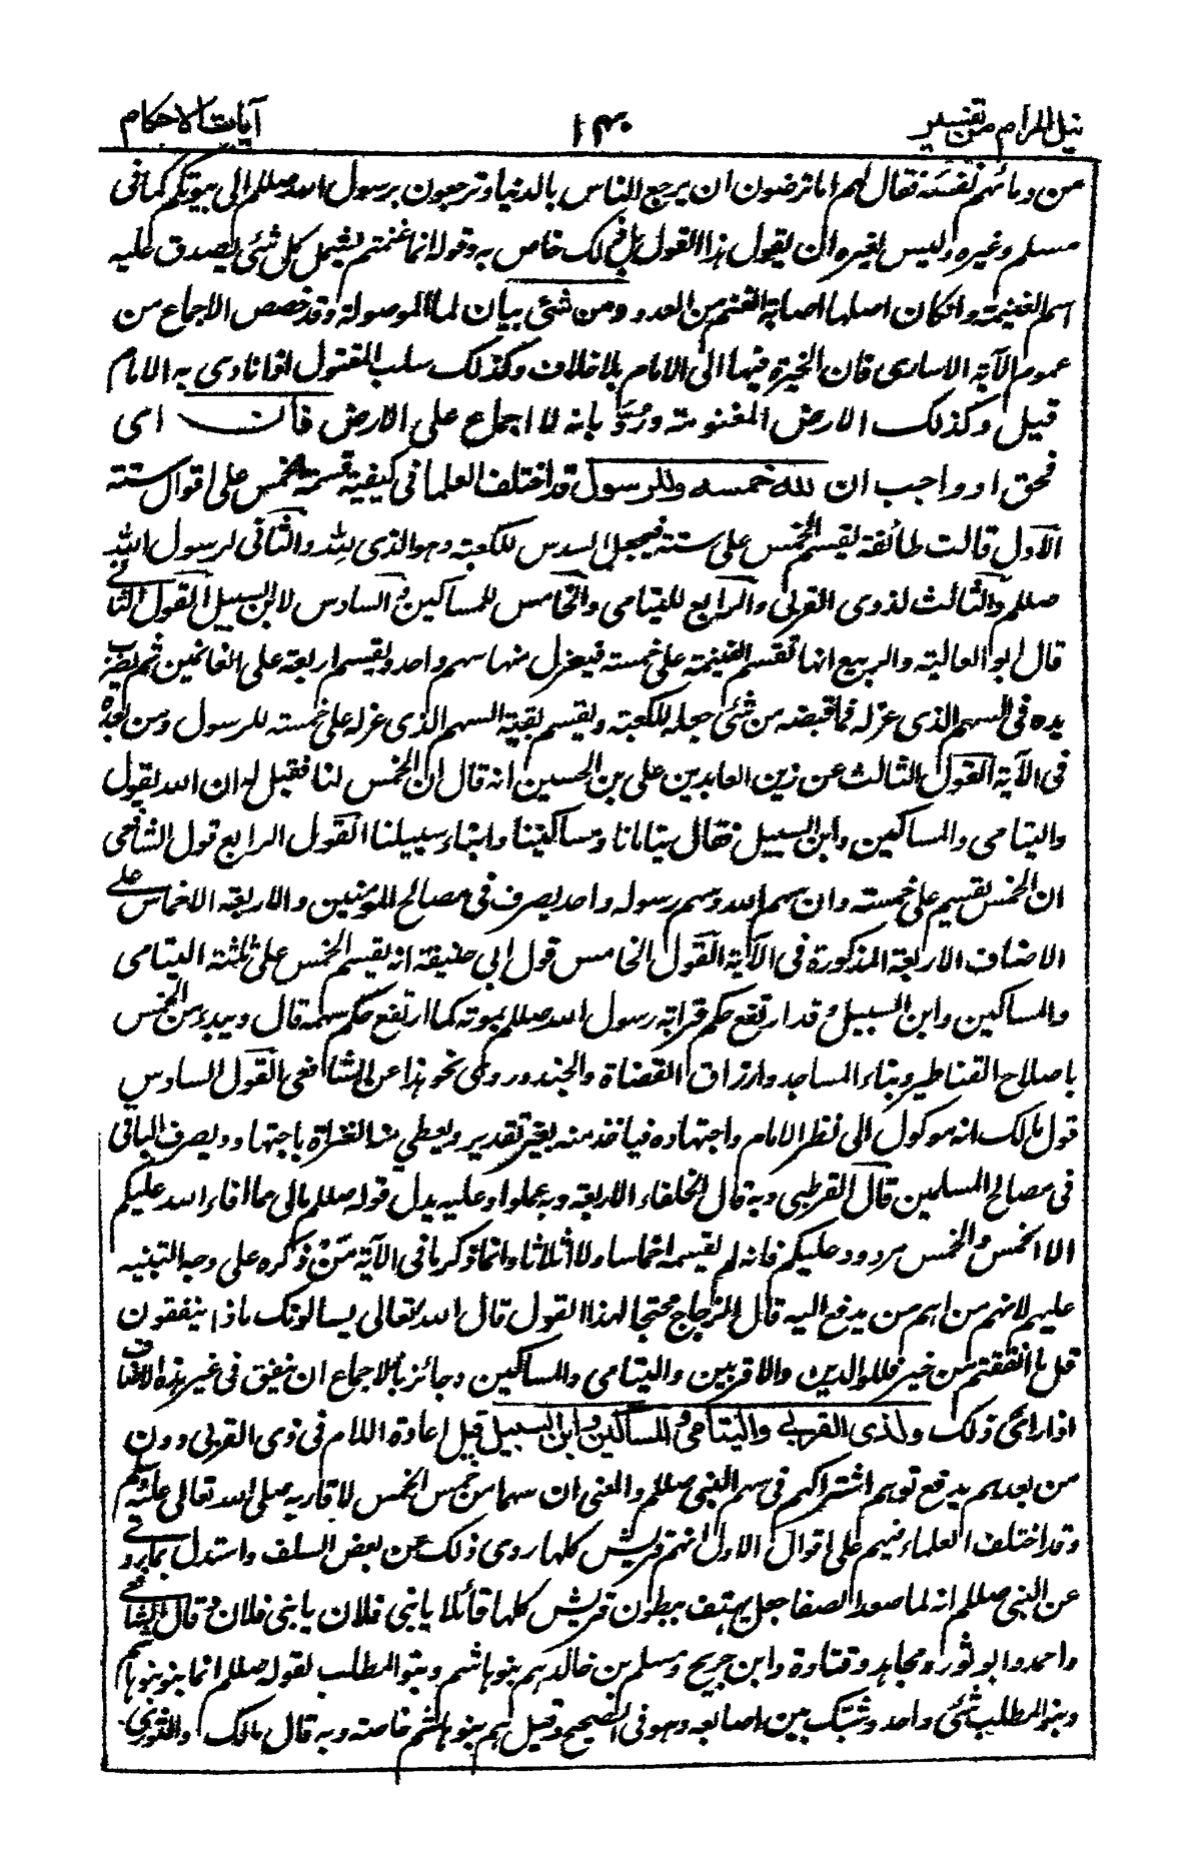 نيل المرام من تفسير ١٤٠ آيات الاحكام
من دمائهم نفسه فقال لهم اما ترضون ان يرجع الناس بالدنيا وترجعون برسول الله صللم الى بيوتكم كما فى
مسلم وغيره وليس لغيره ان يقول هذا القول بل ذلك خاص به وقوله انما غنمتم يشمل كل شئ يصدق عليه
اسم الغنيمة وان كان اصلها اصابة الغنم من العدو ومن شئ بيان لما الموصولة وقد خصص الاجماع من
عموم الآية الاسارى فان الخيرة فيها الى الامام بلا خلاف وكذلك سلب المقتول اذا نادى به الامام
قيل وكذلك الارض المغنومة ورُدَّ بانه لا اجماع على الارض فأن اى
فحق او واجب ان لله خمسه وللرسول قد اختلف العلما فى كيفية قسمة الخمس على اقوال ستة
الاول قالت طائفة يقسم الخمس على ستة فيجعل السدس للكعبة وهو الذى لله والثانى لرسول الله
صللم والثالث لذوى القربى والرابع لليتامى والخامس للمساكين والسادس لابن السبيل القول الثانى
قال ابو العالية والربيع انها تقسم الغنيمة على خمسة فيعزل منها سهم واحد ويقسم اربعة على الغانمين ثم يضرب
يده فى السهم الذى عزله فما قبضه من شئ جعله للكعبة ويقسم بقية السهم الذى عزله على خمسة للرسول ومن بعده
فى الآية القول الثالث عن زين العابدين على بن الحسين انه قال ان الخمس لنا فقيل له ان الله يقول
واليتامى والمساكين وابن السبيل فقال يتامانا ومساكيننا وابناء سبيلنا القول الرابع قول الشافعى
ان الخمس يقسم على خمسة وان سهم الله وسهم رسوله واحد يصرف فى مصالح المؤمنين والاربعة الاخماس على
الاصناف الاربعة المذكورة فى الآية القول الخامس قول ابى حنيفة انه يقسم الخمس على ثلثة اليتامى
والمساكين وابن السبيل وقد ارتفع حكم قرابة رسول الله صللم بموته كما ارتفع حكم سهمه قال ويبدء من الخمس
باصلاح القناطير وبناء المساجد وارزاق القضاة والجند وروى نحو هذا عن الشافعى القول السادس
قول مالك انه موكول الى نظر الامام واجتهاده فياخذ منه بغير تقدير ويعطى منه الغزاة باجتهاد ويصرف الباقى
فى مصالح المسلمين قال القرطبى وبه قال الخلفاء الاربعة وبه عملوا وعليه يدل قوله صللم مالى مما افاء الله عليكم
الا الخمس والخمس مردود عليكم فانه لم يقسمه اخماسا ولا اثلاثا وانما ذكر ما فى الآية مَن ذكره على وجه التنبيه
عليهم لانهم من اهم من يدفع اليه قال الزجاج محتجا لهذا القول قال الله تعالى يسالونك ماذا ينفقون
قل ما انفقتم من خير فللوالدين والاقربين واليتامى والمساكين وجائز بالاجماع ان ينفق فى غير هذه الاصناف
اذا رأى ذلك ولذى القربى واليتامى والمساكين وابن السبيل قيل اعادة اللام فى ذى القربى دون
من بعدهم يدفع توهم اشتراكهم فى سهم النبى صللم والمعنى ان سهما من خمس الخمس لاقاربه صلى الله تعالى عليه وسلم
وقد اختلف العلماء فيهم على اقوال الاول انهم قريش كلها روى ذلك عن بعض السلف واستدل بما روى
عن النبى صللم انه لما صعد الصفا جعل يهتف ببطون قريش كلها قائلا يا بنى فلان يا بنى فلان وقال الشافعى
واحمد وابو ثور ومجاهد وقتادة وابن جريج ومسلم بن خالد هم بنو هاشم وبنو المطلب لقوله صللم انما بنو هاشم
وبنو المطلب شئ واحد وشبك بين اصابعه وهو فى الصحيح وقيل هم بنو هاشم خاصة وبه قال مالك والثورى